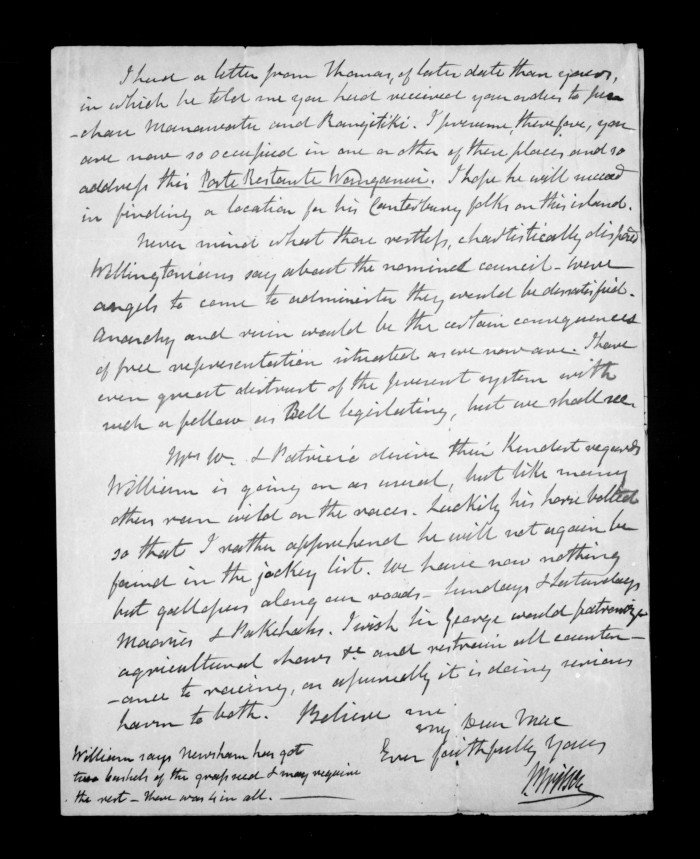 I had a letter from Thomas, of later date than yours,
in which he told me you had received your orders to pur
-chase Manawatu and Rangitiki. I presume, therefore, you
are now so occupied in one or other of these places and so
address this Poste Restante Wanganui. I hope he will succeed
in finding a location for his Canterbury folks on this island.
Never mind what those restless, chartistically disposed
Wellingtonians say about the nominee council - were
angels to come to administer they would be dissatisfied.
Anarchy and ruin would be the certain consequences
of free representation situated as we now are. I have
even great distrust of the present system with
such a fellow as Bell legislating, but we shall see.
Mrs W. & Patricia desire their kindest regards
William is going on as usual, but like many
others run wild on the races. Luckily his horse bolted
so that I rather apprehend he will not again be
found in the jockey list. We have now nothing
but gallopers along our roads - Sundays & Saturdays
Maories & Pakehahs. I wish Sir George would patronize
agricultural shows &c and restrain all counten-
-ance to racing, as assuredly it is doing serious
harm to both. Believe me
my Dear Mac
Ever faithfully Yours
William says Newsham has got
two bushels of the grass seed & may require
the rest - there was 4 in all.